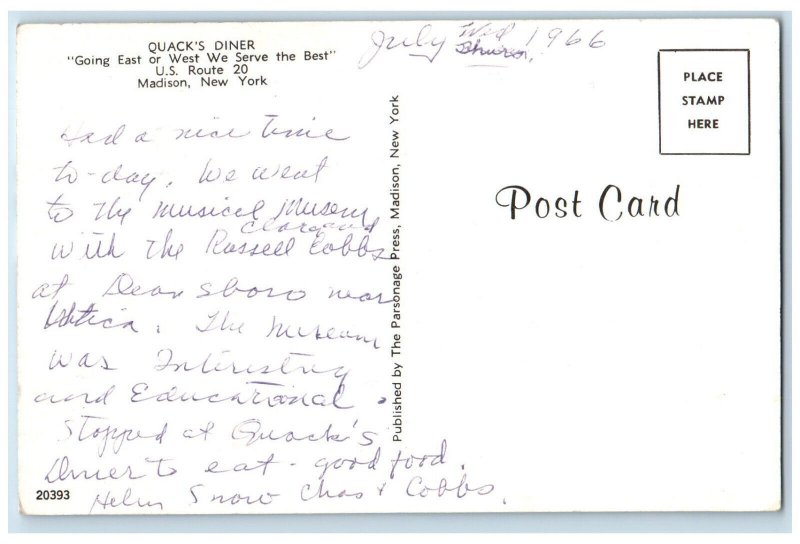 QUACK'S DINER
"Going East or West We Serve the Best"
U.S. Route 20
Madison, New York
July Wed 1966
Thurs.
PLACE
STAMP
HERE
Post Card
Published by The Parsonage Press, Madison, New York
Had a nice time
to-day. We went
to the Musical Museum
with the Russell Cobbs
at Deansboro near
Utica. The museum
was Interesting
and Educational.
Stopped at Quack's
Diner to eat - good food.
Helen Snow Chas & Cobbs.
20393